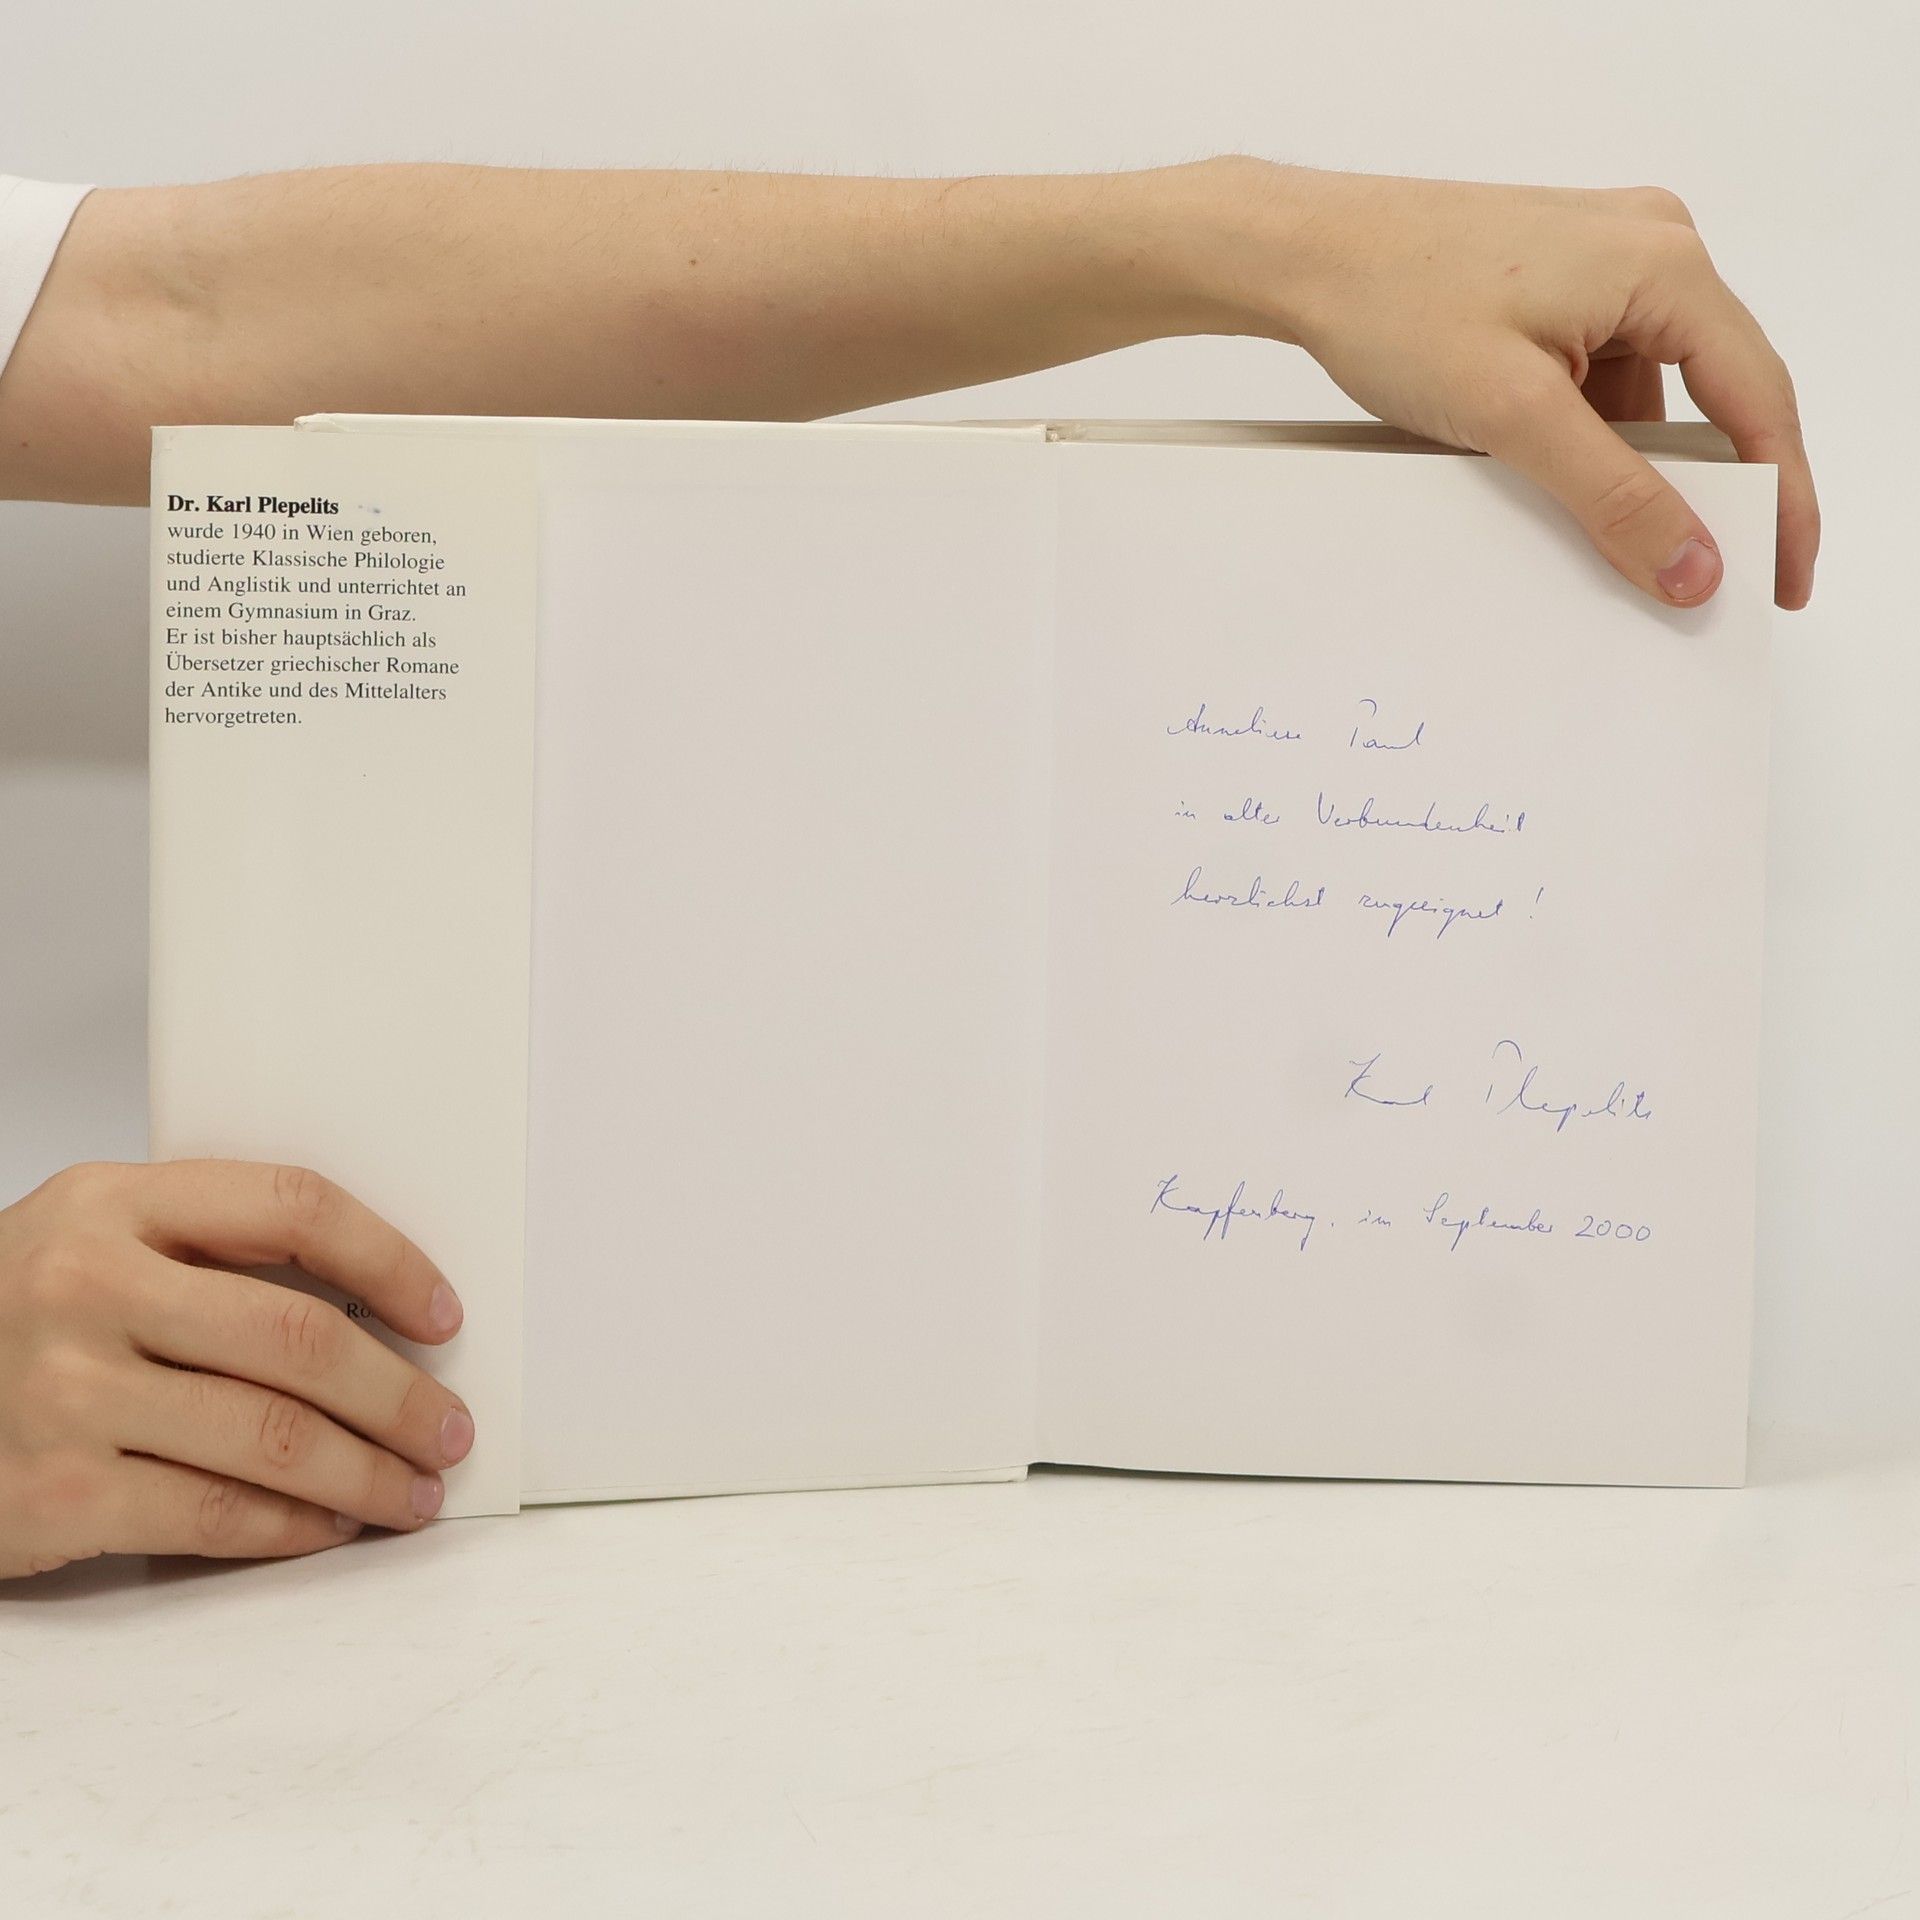 Dr. Karl Plepelits
wurde 1940 in Wien geboren,
studierte Klassische Philologie
und Anglistik und unterrichtet an
einem Gymnasium in Graz.
Er ist bisher hauptsächlich als
Übersetzer griechischer Romane
der Antike und des Mittelalters
hervorgetreten.
Anneliese Paul
in alter Verbundenheit
herzlichst zugeeignet !
Karl Plepelits
Kapfenberg, im September 2000